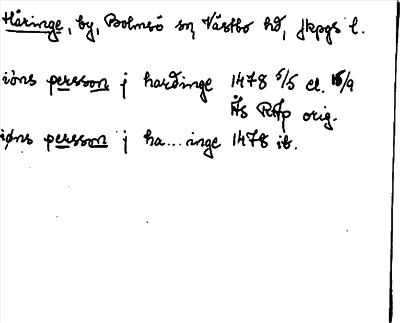 Håringe, by, Bolmsö sn, Västbo hd, Jkpgs l.
iöns persson j hardinge 1478 5/5 el. 15/9
Ås RAp orig.
iøns persson j ha...inge 1478 ib.